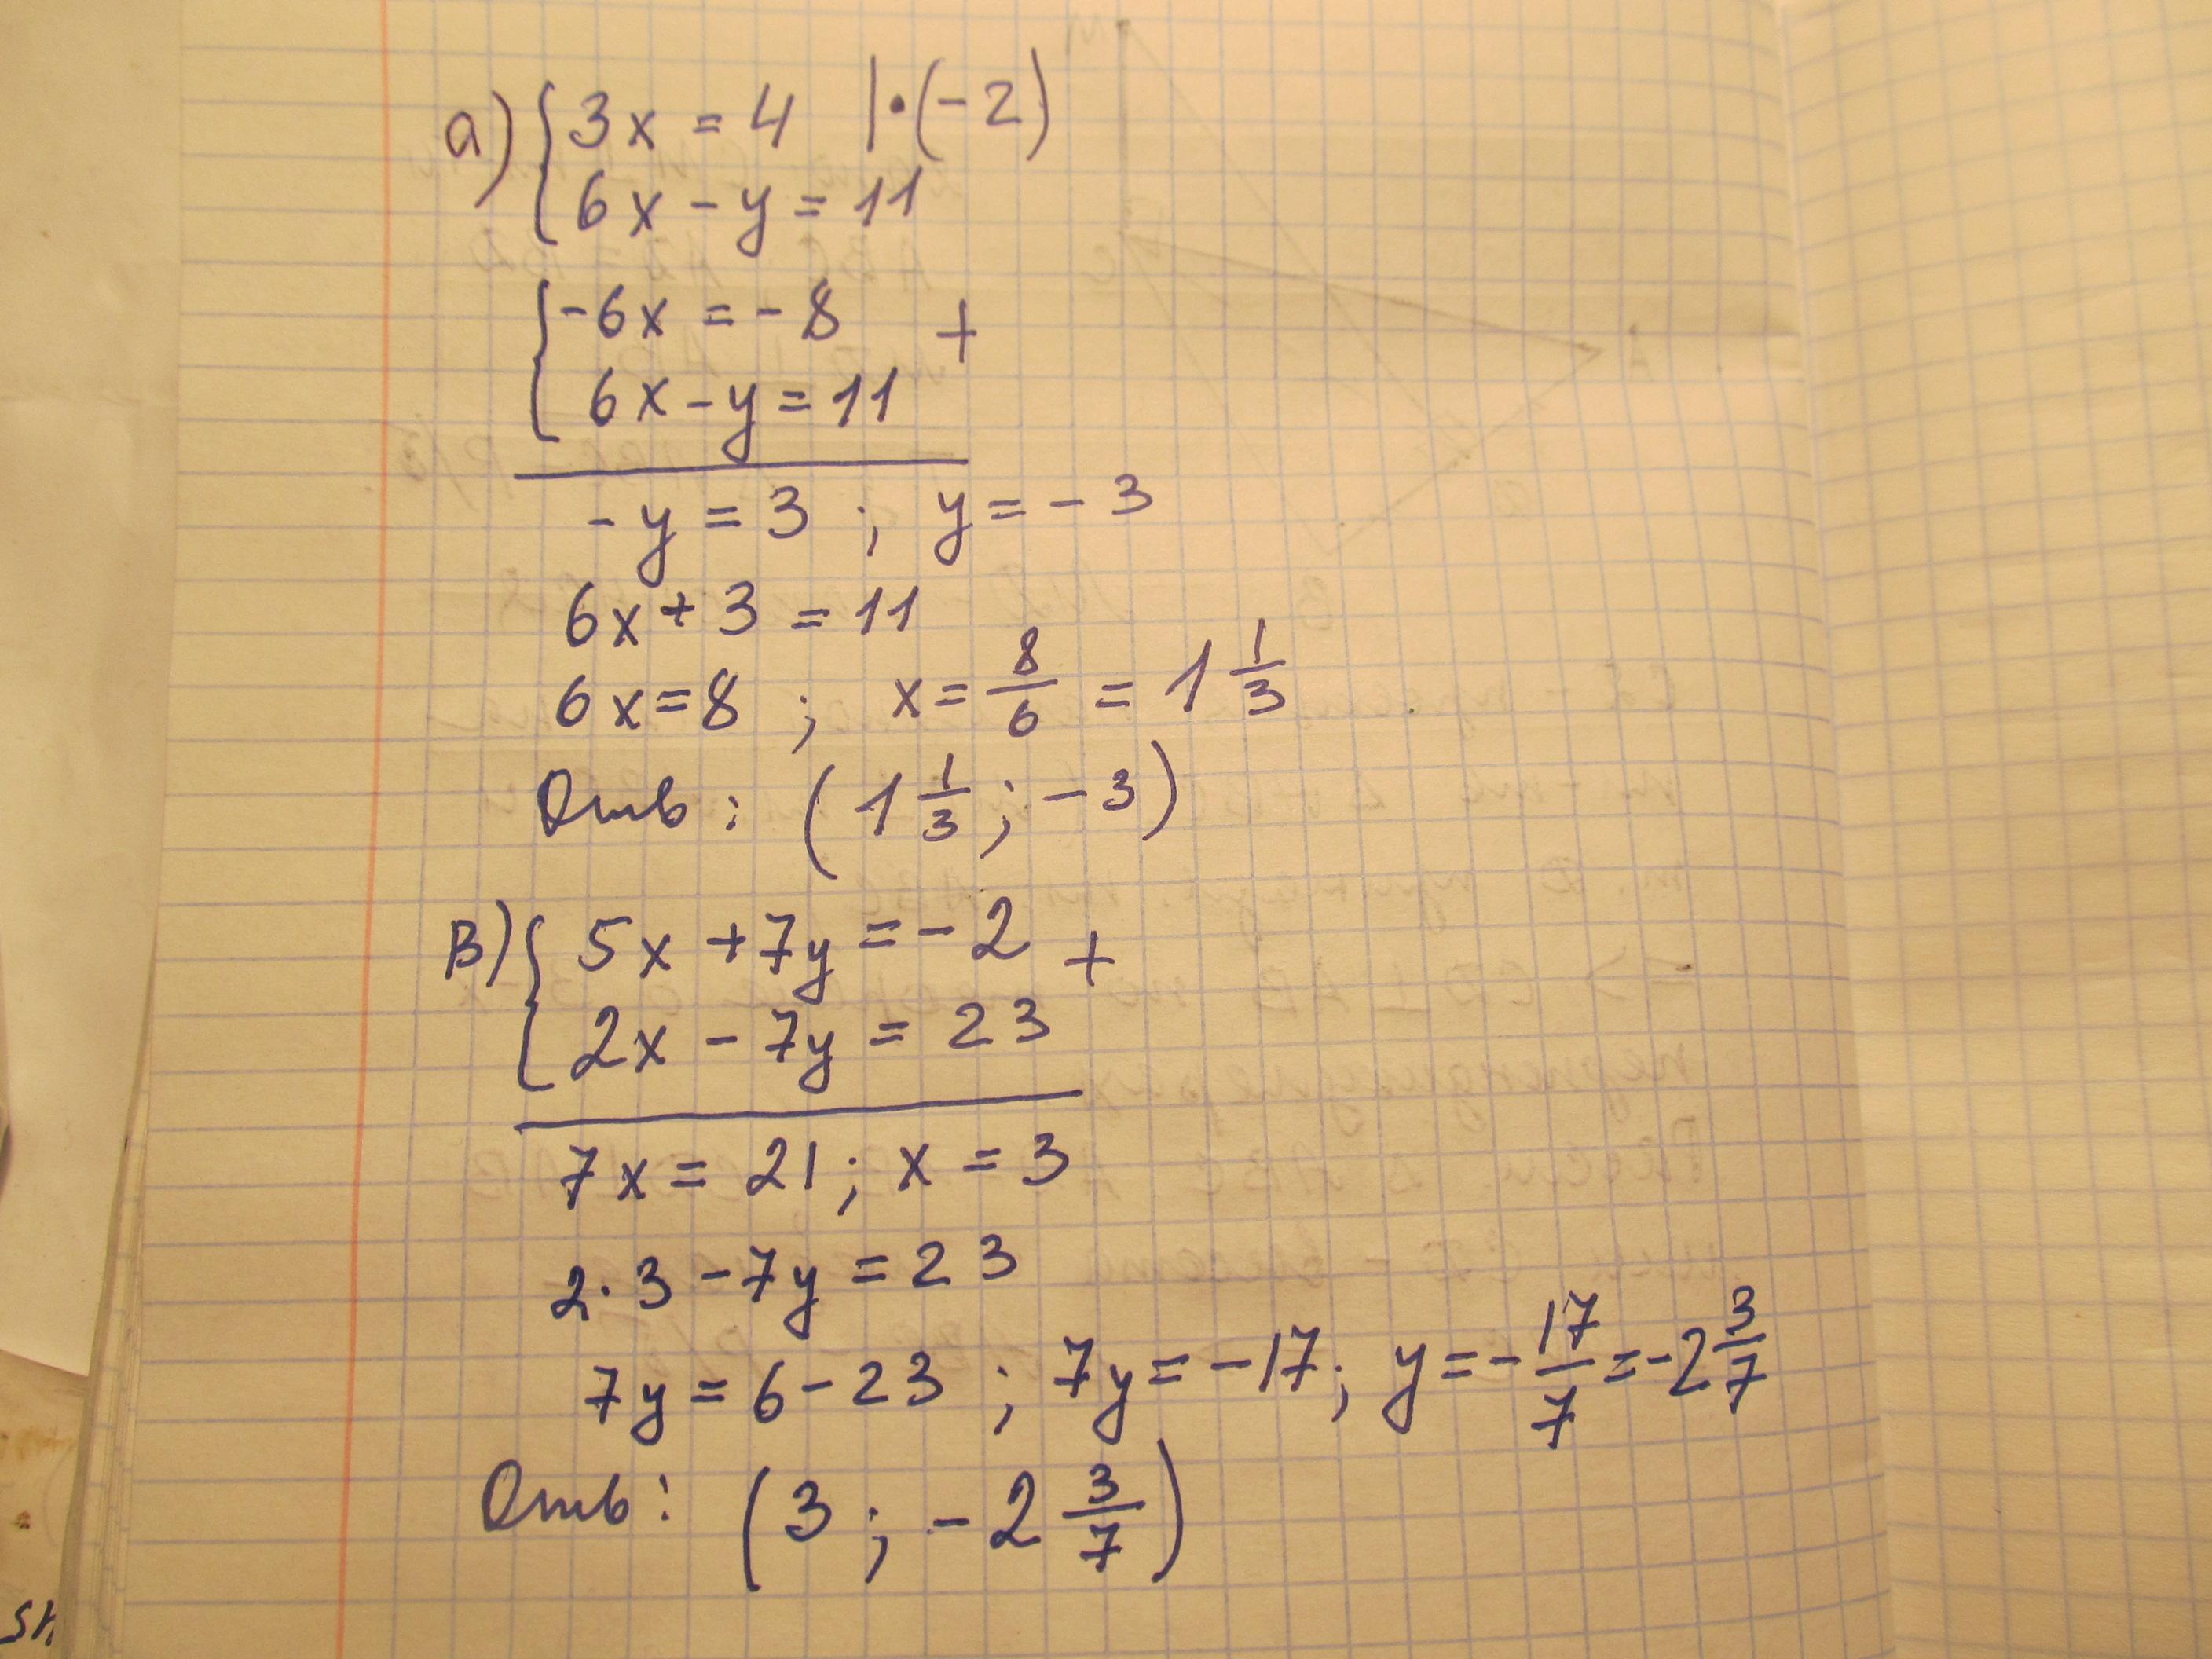 а) { 3x = 4 | · (-2)
6x - y = 11
{ -6x = -8 +
6x - y = 11
-y = 3 ; y = -3
6x + 3 = 11
6x = 8 ; x = 8/6 = 1 1/3
Отв : (1 1/3 ; -3)
в) { 5x + 7y = -2 +
2x - 7y = 23
7x = 21 ; x = 3
2 · 3 - 7y = 23
7y = 6 - 23 ; 7y = -17 ; y = -17/7 = -2 3/7
Отв : (3 ; -2 3/7)